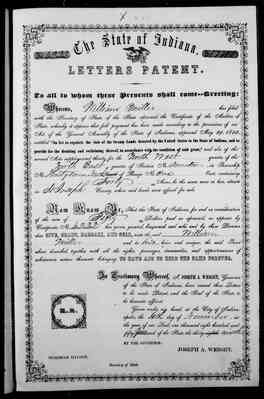 The State of Indiana.
LETTERS PATENT.
To all to whom these Presents shall come—Greeting:
Whereas, William has filed
with the Secretary of State of the State aforesaid the Certificate of the Auditor of
State, whereby it appears that full payment has been made according to the provisions of an
Act of the General Assembly of the State of Indiana, approved May 29, 1852,
entitled "An Act to regulate the sale of the Swamp Lands donated by the United States to the State of Indiana, and to
provide for the draining and reclaiming thereof, in accordance with the condition of said grant," and acts of the
second Act supplemental thereto, for the North West quarter of the
quarter of Section Number in Township
No. Thirty of Range No. One East containing
Forty Acres, be the same more or less, situate
in St. Joseph County, when said lands were offered for sale.
Now Know Ye, That the State of Indiana, for and in consideration
of the sum of Dollars paid as aforesaid, as appears by
Certificate No. has given, granted, bargained and sold, and by these Presents
does GIVE, GRANT, BARGAIN, AND SELL, unto the said William
and to his heirs and assigns the said Tract
above described, together with all the rights, privileges, immunities, and appurtenances of
whatsoever nature thereunto belonging, TO HAVE AND TO HOLD THE SAME FOREVER.
In Testimony Whereof, I, JOSEPH A. WRIGHT, Governor
of the State of Indiana, have caused these Letters
to be made Patent, and the Seal of the State to
be hereunto affixed.
Given under my hand, at the City of Indian-
apolis, the day of November in
the year of our Lord, one thousand eight hundred and
and of the State the thirty
BY THE GOVERNOR:
JOSEPH A. WRIGHT.
Secretary of State.